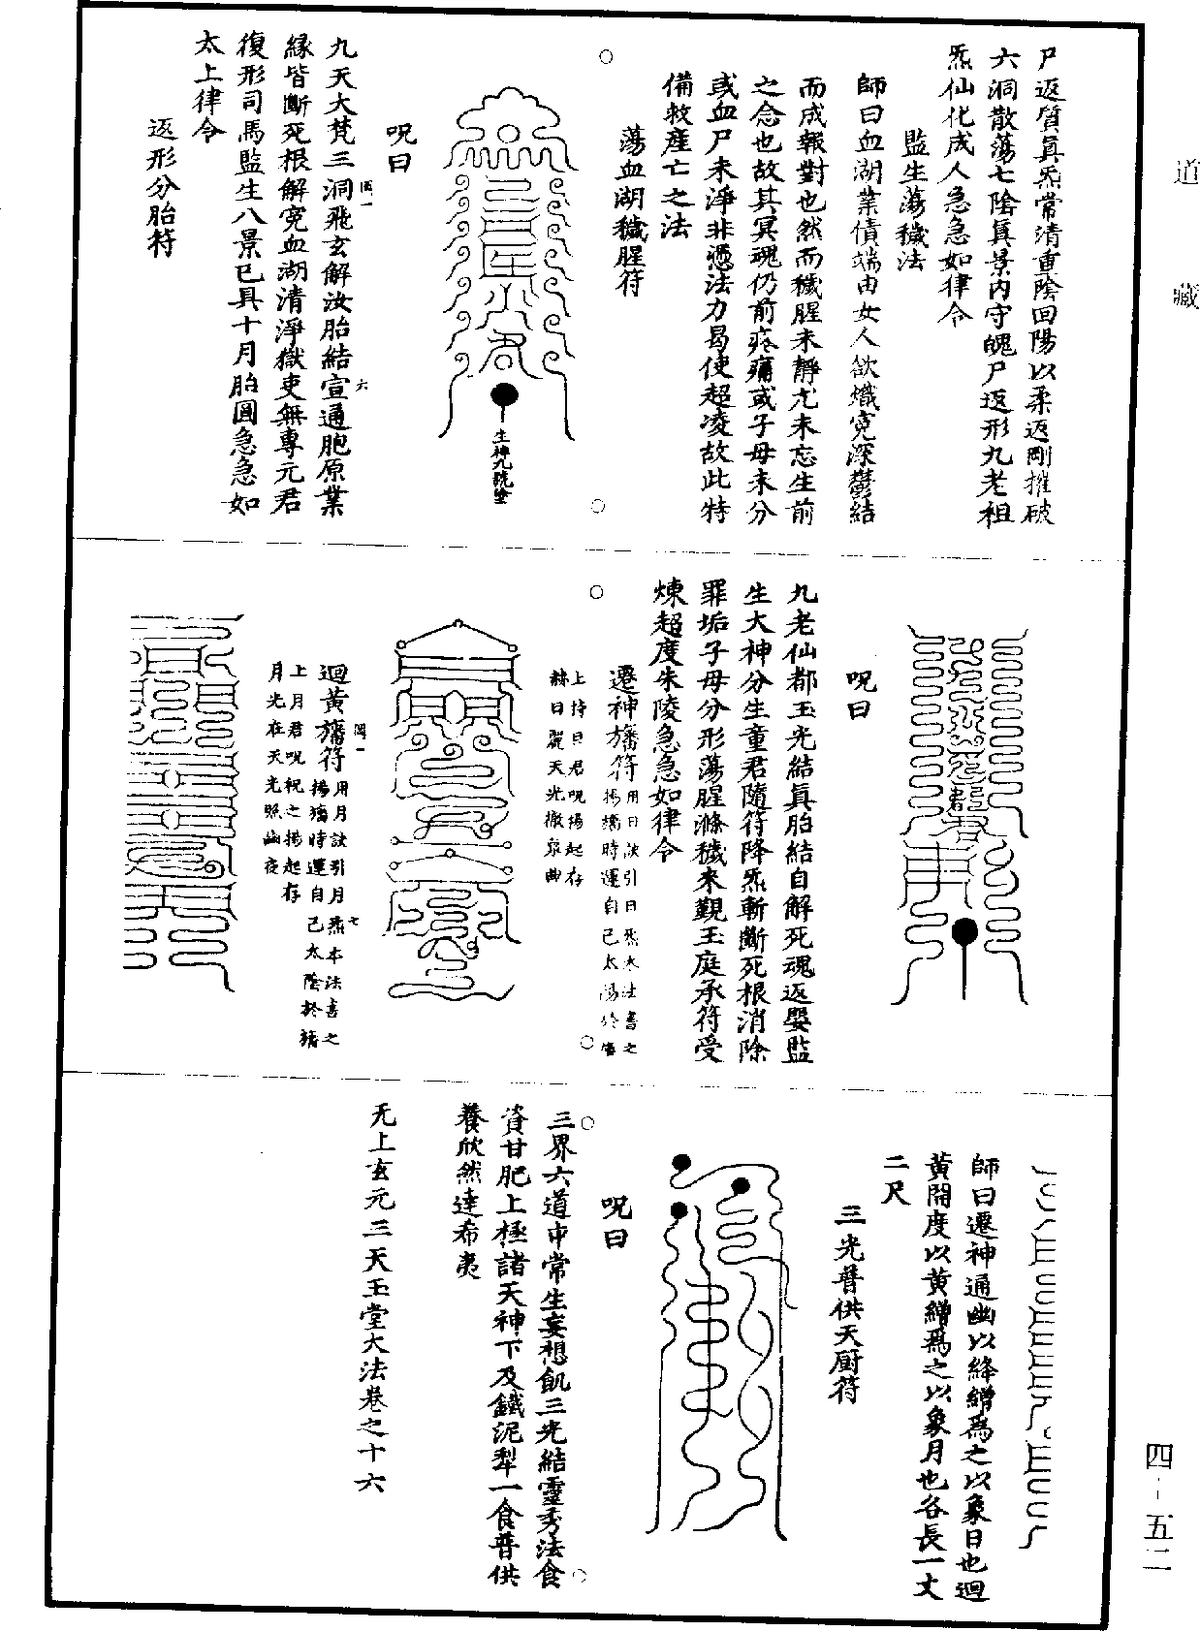 道藏
尸返質眞炁常清重陰回陽以柔返剛摧破
六洞散蕩七陰眞景內守魄尸返形九老祖
炁仙化成人急急如律令
監生蕩穢法
師曰血湖業債端由女人欲熾寃深鬱結
而成報對也然而穢腥未靜尤未忘生前
之念也故其冥魂仍前或子母未分
或血尸未淨非憑法力曷使超凌故此特
備救產亡之法
蕩血湖穢腥符
生神九號塗
呪曰
九天大梵三洞飛玄解汝胎結宣通胞原業
緣皆斷死根解寃血湖清淨獄吏無專元君
復形司馬監生八景已具十月胎圓急急如
太上律令
返形分胎符
呪曰
九老仙都玉光結眞胎結自解死魂返嬰監
生大神分生童君隨符降炁斬斷死根消除
罪垢子母分形蕩腥滌穢來觀玉庭承符受
煉超度朱陵急急如律令
遷神旛符
用日訣引日炁本法書之
揚旛時運自己太陽於旛
上持日君呪揚起存
赫日麗天光徹泉曲
迴黃旛符
用月訣引月炁本法書之
揚旛時運自己太陰於旛
上月君呪祝之揚起存
月光在天光照幽夜
師曰遷神通幽以絳繒爲之以象日也迴
黃開度以黃繒爲之以象月也各長一丈
二尺
三光普供天廚符
呪曰
三界六道中常生妄想飢三光結靈秀法食
資甘肥上極諸天神下及鐵泥犁一食普供
養欣然達希夷
无上玄元三天玉堂大法卷之十六
四-五二